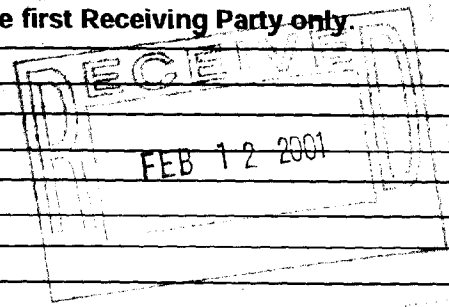 e first Receiving Party only.
RECEIVED
FEB 12 2001